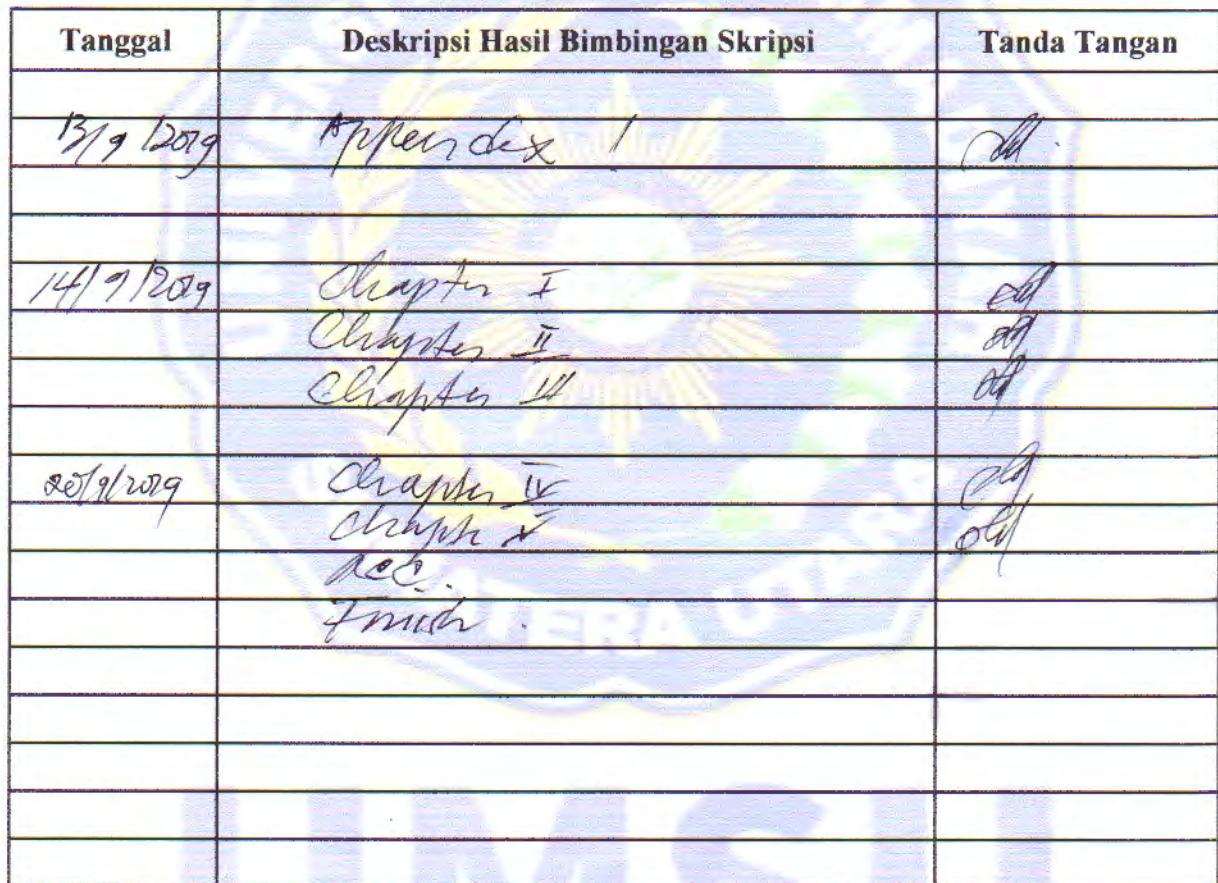 Tanggal Deskripsi Hasil Bimbingan Skripsi Tanda Tangan
13/9/2019 Appendix 1
14/9/2019 Chapter I
Chapter II
Chapter III
20/9/2019 Chapter IV
Chapter V
Acc.
Finish.
UMSU